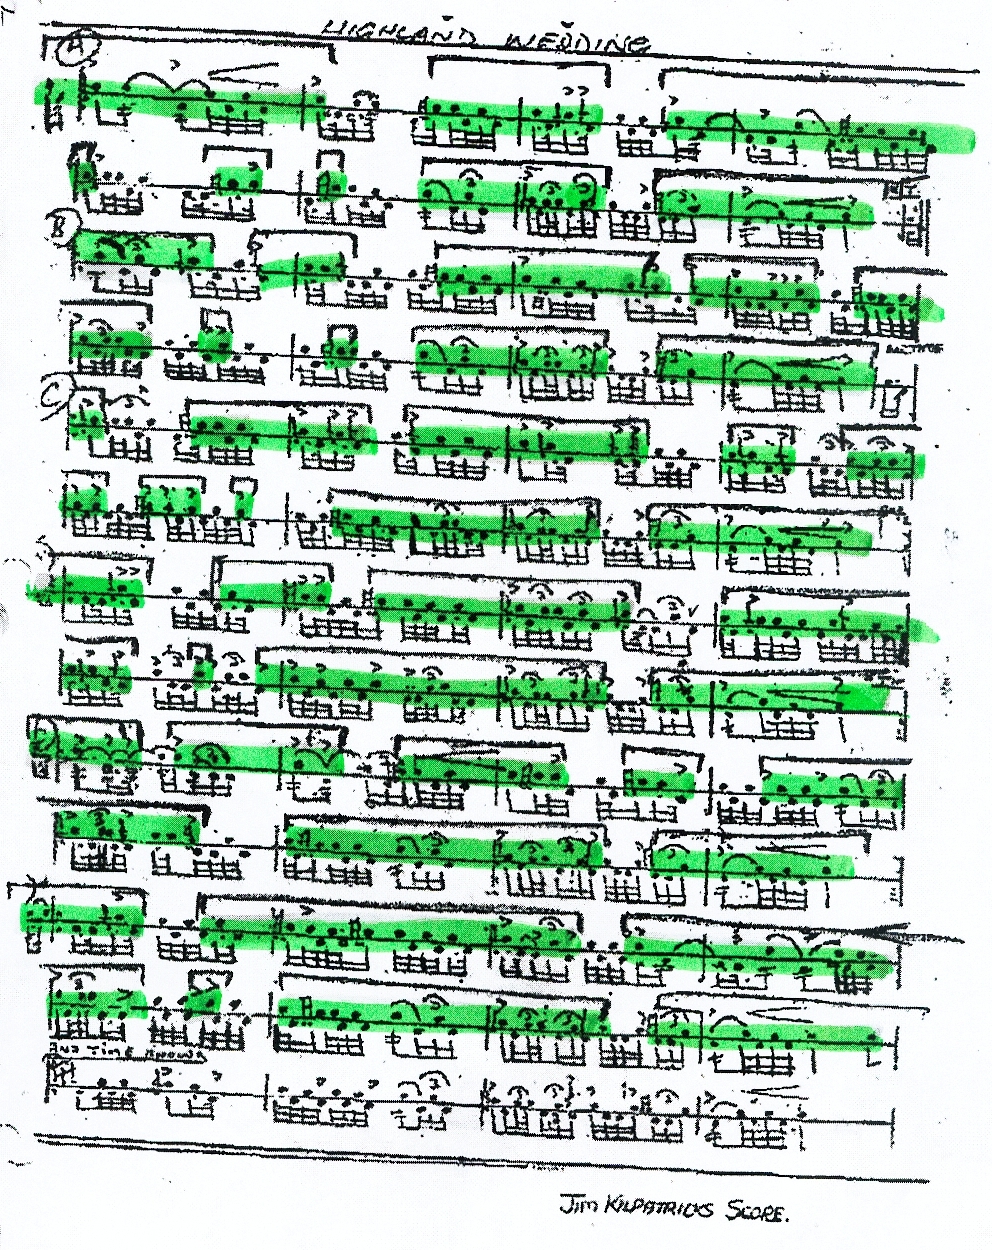 HIGHLAND WEDDING
A
B
C
2ND TIME AROUND
JIM KILPATRICKS SCORE.